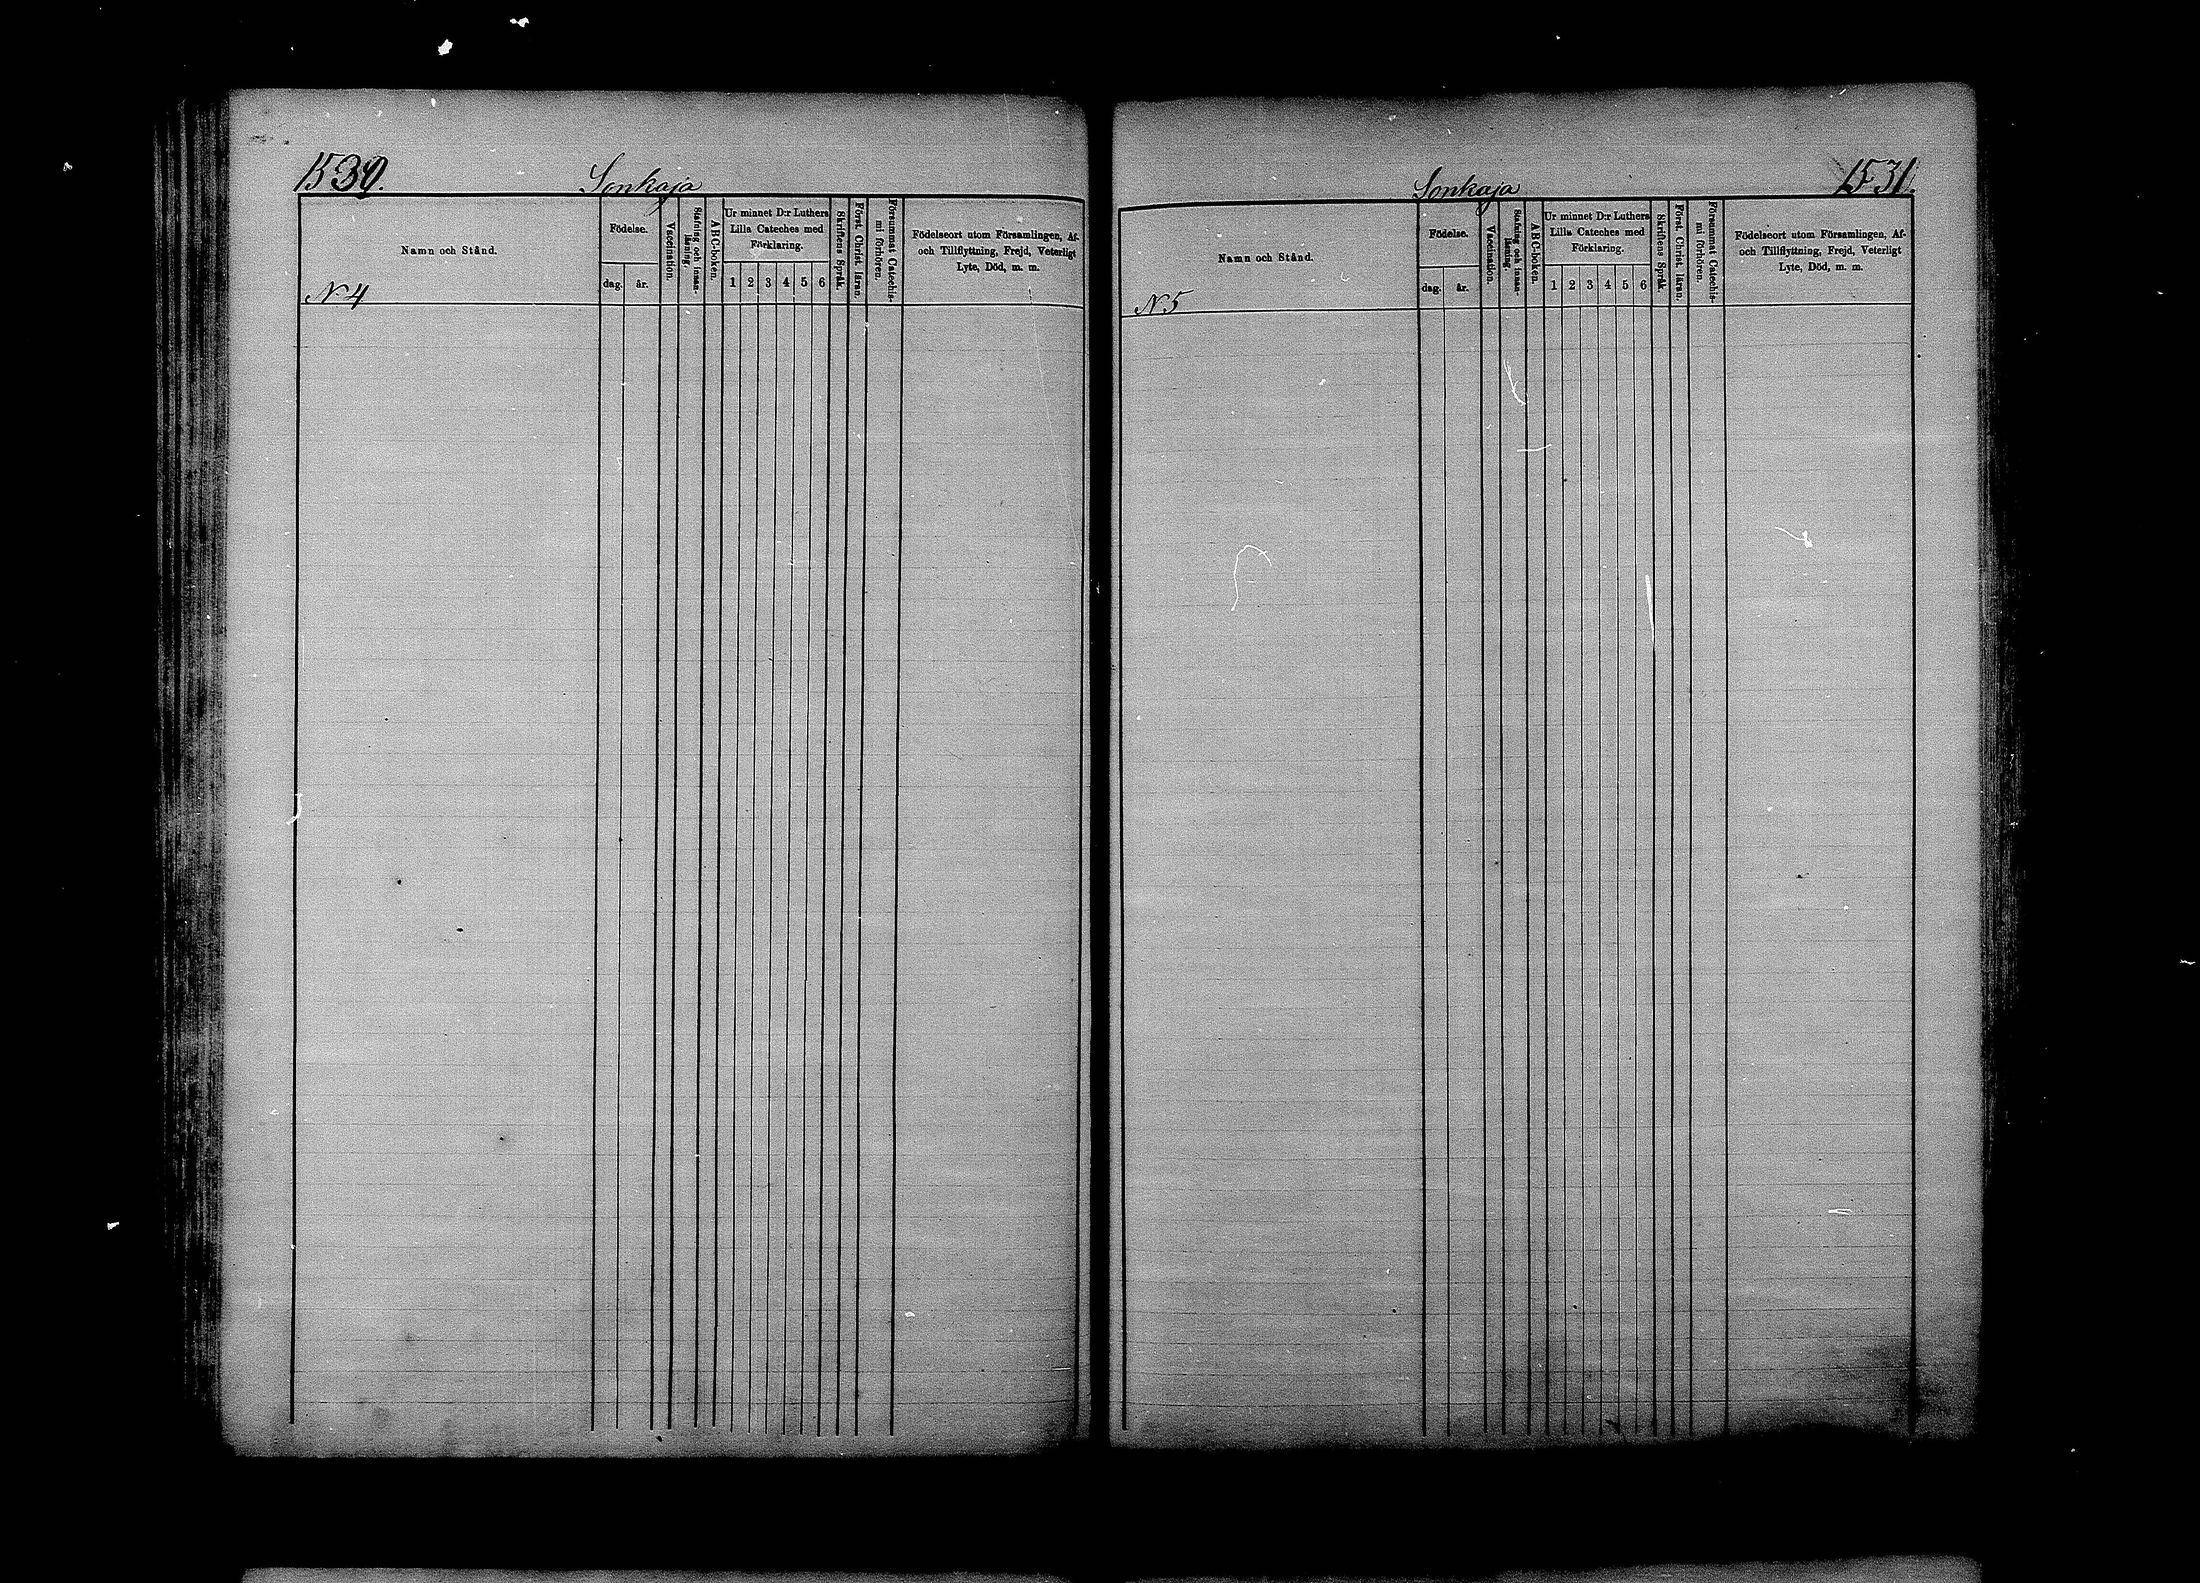 1530.
Sonkaja
Namn och Stånd.
Födelse.
dag.
år.
Vaccination.
Stafning och innan-
läsning.
ABC-boken.
Ur minnet D:r Luthers
Lilla Cateches med
Förklaring.
1 2 3 4 5 6
Skriftens Språk.
Först. Christ. läran.
Försummat Catechis-
mi förhören.
Födelseort utom Församlingen, Af-
och Tillflyttning, Frejd, Veterligt
Lyte, Död, m. m.
N 4
Sonkaja
1531.
Namn och Stånd.
Födelse.
dag.
år.
Vaccination.
Stafning och innan-
läsning.
ABC-boken.
Ur minnet D:r Luthers
Lilla Cateches med
Förklaring.
1 2 3 4 5 6
Skriftens Språk.
Först. Christ. läran.
Försummat Catechis-
mi förhören.
Födelseort utom Församlingen, Af-
och Tillflyttning, Frejd, Veterligt
Lyte, Död, m. m.
N 5